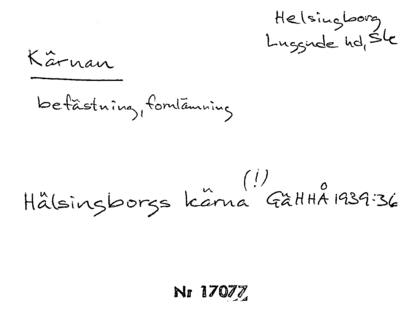 Helsingborg
Luggude hd, Sk
Kärnan
befästning, fornlämning
(!)
Hälsingborgs kärna GäHHÅ 1939:36
Nr 17077